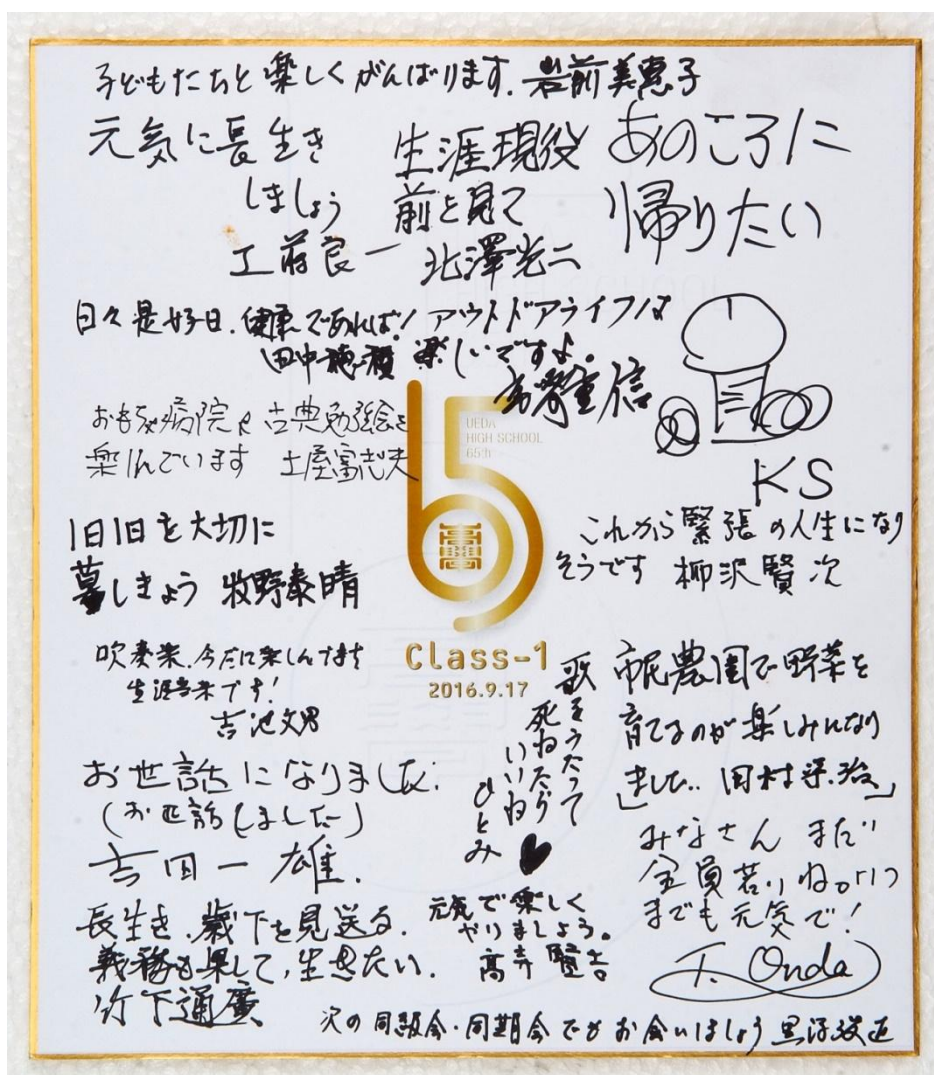 子どもたちと楽しくがんばります. 岩前美恵子
元気に長生き
しましょう
工藤良一
生涯現役
前を見て
北澤光二
あのころに
帰りたい
KS
日々是好日. 健康であれば!
田中穂積
アウトドアライフは
楽しいですよ.
重信
おもちゃ病院や古典勉強会を
楽しんでいます 土屋富志夫
UEDA
HIGH SCHOOL
65th
1日1日を大切に
暮しましょう 牧野泰晴
これから緊張の人生になり
そうです 柳沢賢次
Class-1
2016.9.17
吹奏楽、今だに楽しんでます
生涯音楽です!
吉池文男
歌をうたって
死ねたら
いいね
ひとみ
市民農園で野菜を
育てるのが楽しみになり
ました..
お世話になりました.
(お世話しました)
吉田一雄.
みなさん まだ
全員若いね。いつ
までも元気で!
T. Onda
長生き. 歳下を見送る.
義務も果して, 生きたい.
竹下通廣
元気で楽しく
やりましょう。
高寺賢吉
次の同級会・同期会でお会いしましょう